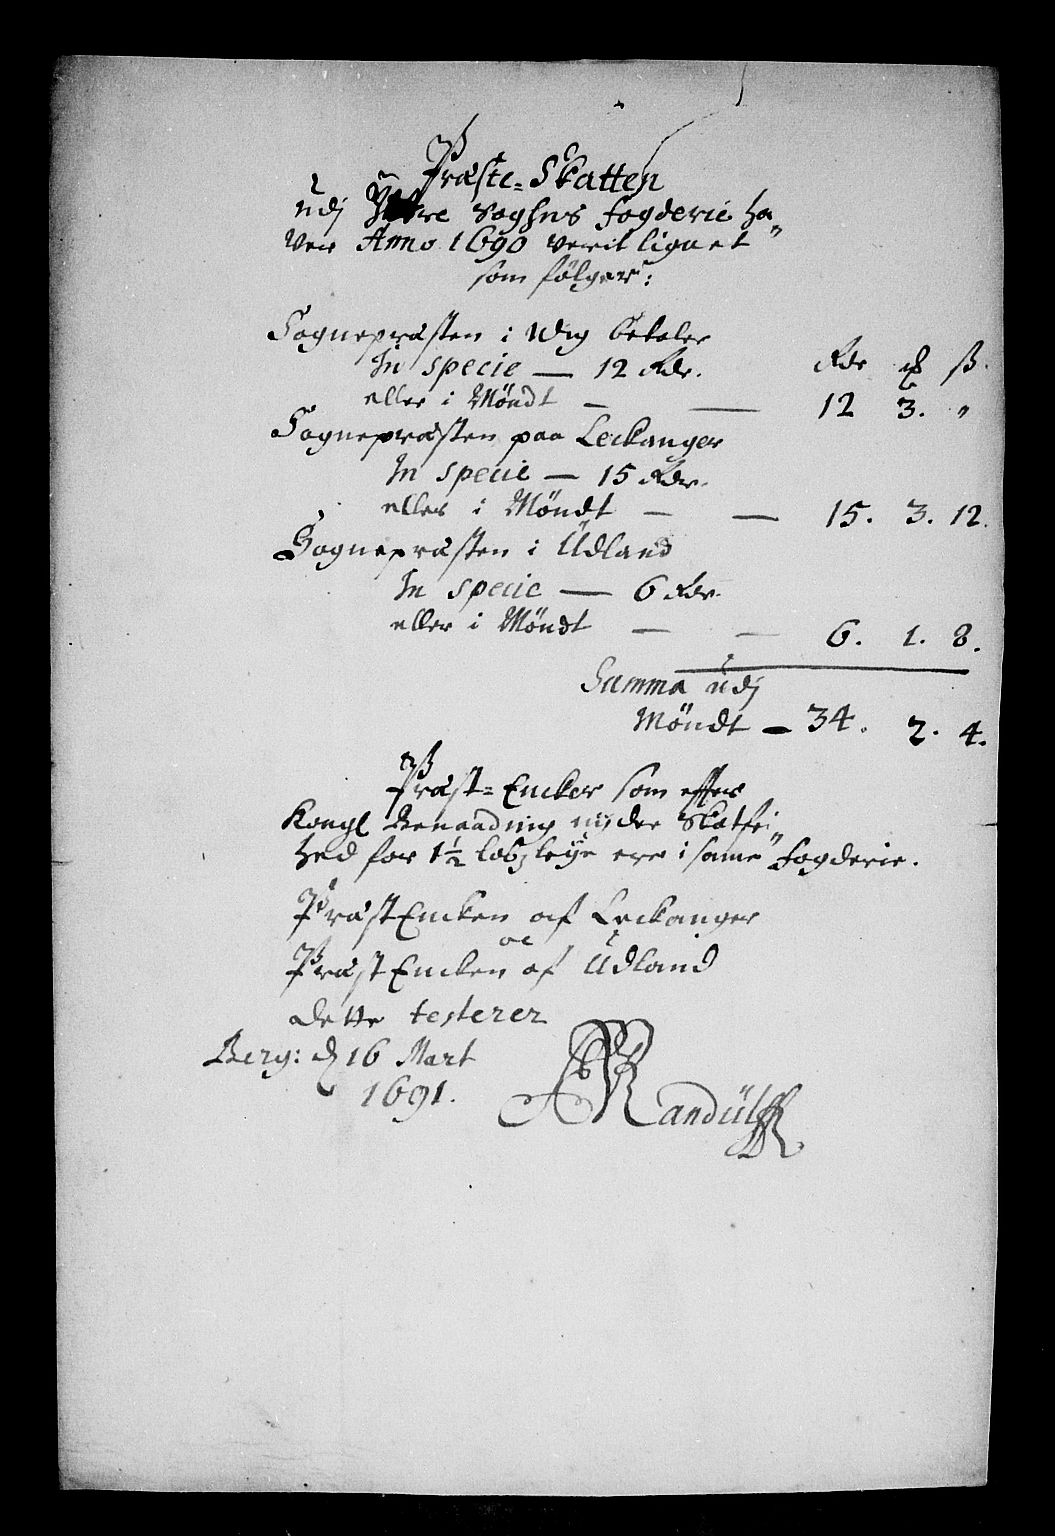 Præste-Skatten
udj Yttre Soghns fogderie ha„
ver Anno 1690 verit lignet
som følger:
Sognepræsten i Wiig betaler
In specie — 12 Rdr. Rdr ß.
eller i Møndt — — 12 3. „
Sognepræsten paa Leckanger
In specie — 15 Rdr.
eller i Møndt — — 15. 3. 12.
Sognepræsten i Udland
In specie — 6 Rdr.
eller i Møndt — — 6. 1. 8.
Summa udj
Møndt — 34. 2. 4.
Præst-Encker som efter
Kongl Benaadning nyder Skatfri„
hed for 1½ løbs leye ere i same fogderie.
PræstEncken af Leckanger
oc
PræstEncken af Udland
dette testerer
Berg: d 16 Mart
1691.
Randulff